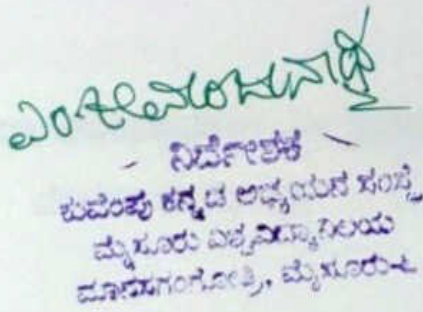 ಎಂ ಜಿ ಮಂಜುನಾಥ
ನಿರ್ದೇಶಕ
ಕುವೆಂಪು ಕನ್ನಡ ಅಧ್ಯಯನ ಸಂಸ್ಥೆ
ಮೈಸೂರು ವಿಶ್ವವಿದ್ಯಾನಿಲಯ
ಮಾನಸಗಂಗೋತ್ರಿ, ಮೈಸೂರು-೬